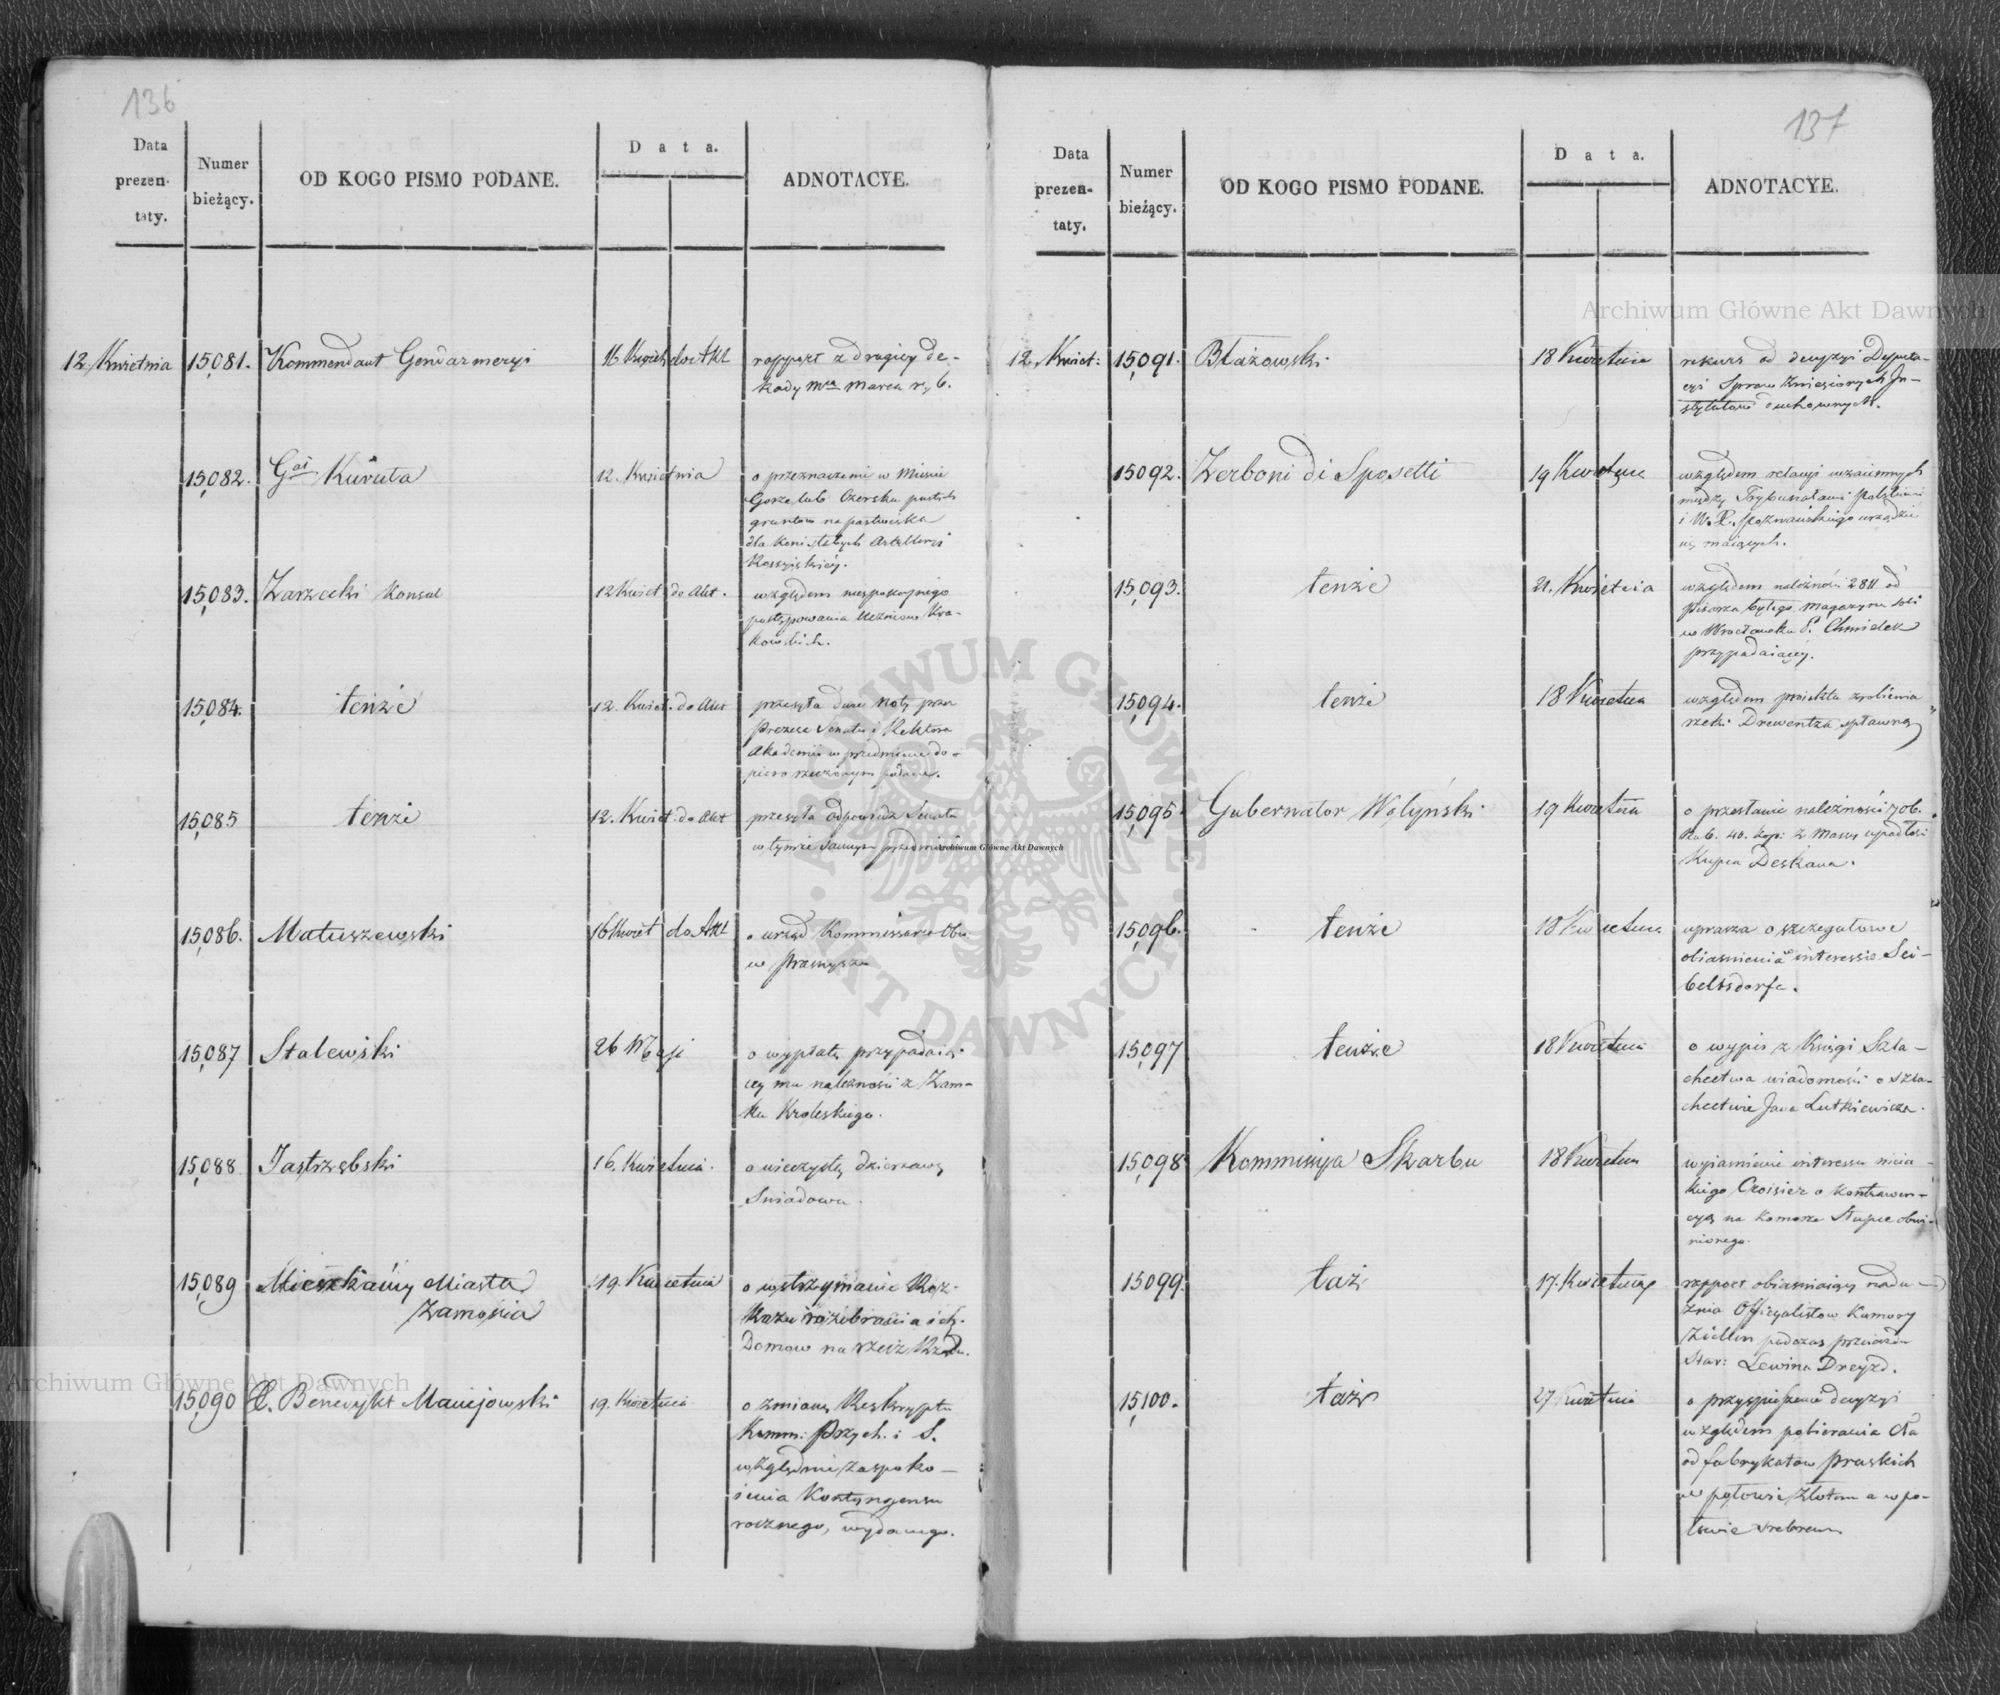 136
Data prezen- taty.
Numer bieżący.
OD KOGO PISMO PODANE.
Data.
ADNOTACYE.
12. Kwietnia 15,081. Kommendant Gendarmeryi 16 Kwiet do Akt
rapport z drugiey de-
kady mca Marca r. b.
15,082. Gał Kuruta 12. Kwietnia
o przeznaczenie w Mieście
Gorze lub Czersku pustych
gruntow na pastwiska
dla koni Artylleryi
Rossyiskiéy.
15,083. Zarzecki Konsul 12 Kwiet do Akt.
względem niespokojnego
postępowania Uczniow Kra-
kowskich.
15,084. tenże 12. Kwiet. do Akt
przesyła dwie noty przez
Prezesa Senatu i Rektora
Akademii w przedmiocie do-
piero rzeczonym podane.
15,085 tenże 12. Kwiet. do Akt
przesyła odpowiedź Senatu
w tymże samym przedmiocie
15,086. Matuszewski 16 Kwiet do Akt
o urząd Kommissarza Obw.
w Przasnyszu
15,087 Stalewski 26 Maji
o wypłatę przypadaią-
cey mu należności z Zam-
ku Krolewskiego.
15,088 Jastrzębski 16. Kwietnia.
o wieczystą dzierzawę
Sniadowa.
15,089 Mieszkańcy Miasta 19. Kwietnia
Zamościa
o wstrzymanie Roz-
kazu rozebrania ich
Domow na rzecz Rządu.
15,090 X. Benedykt Maciejowski 19. Kwietnia
o zmianę Reskryptu
Komm: Przych. i S.
względnie zaspoko-
ienia Kontyngensu
rocznego, wydanego.
137
Data prezen- taty.
Numer bieżący.
OD KOGO PISMO PODANE.
Data.
ADNOTACYE.
12. Kwiet: 15,091. Błażowski 18 Kwietnia
rekurs od decyzyi Deputa-
cyi Spraw Zniesionych In-
stytutow duchownych.
15092. Zerboni di Sposetti 19 Kwietnia
względem relacyi wzaiemnych
między Trybunałami Polskiemi
i W. X. Poznańskiego urządzić
się maiących.
15,093. tenże 21. Kwietnia
względem należności 2811 od
Pisarza byłego Magazynu soli
w Wrocławku P. Chmielek
przypadaiącéy.
15,094. tenże 18 Kwietnia
względem proiektu zrobienia
rzeki Drewentza spławną
15,095. Gubernator Wołyński 19 Kwietnia
o przesłanie należności 706.
Rub. 40. kop: z Massy upadłości
Kupca Deskana.
15,096. tenże 18 Kwietnia
uprasza o szczegułowe
obiasnienia w interessie Sei-
beltsdorfa.
15,097 tenże 18 Kwietnia
o wypis z Księgi Szla-
chectwa wiadomości o szla-
chectwie Jana Lutkiewicza.
15,098 Kommissya Skarbu 18 Kwietnia
wyiaśnienie interessu nieia-
kiego Croisier o kontrawen-
cyą na komorze Słupce obwi-
nionego.
15,099. taż 17. Kwietnia
rapport obiasniaiący nadu-
życia Officyalistow Kamory
podczas przeiazdu
Star: Lewina Dreyzd.
15,100. taż 27 Kwietnia
o przyspieszenie decyzyi
względem pobierania Cła
od fabrykatow pruskich
w połowie złotem a w po-
łowie srebrem
Archiwum Główne Akt Dawnych
Archiwum Główne Akt Dawnych
Archiwum Główne Akt Dawnych
ARCHIWUM GŁÓWNE AKT DAWNYCH